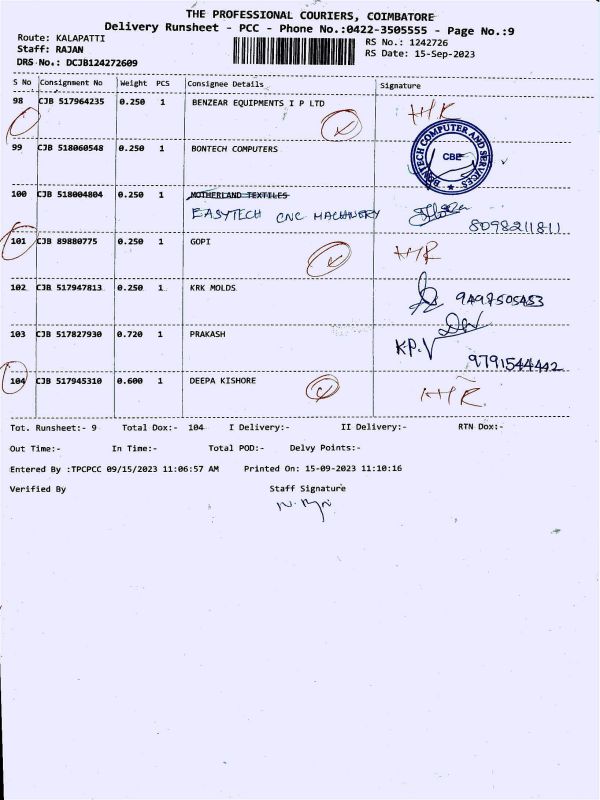 THE PROFESSIONAL COURIERS, COIMBATORE
Delivery Runsheet - PCC - Phone No.:0422-3505555 - Page No.:9
Route: KALAPATTI
RS No.: 1242726
Staff: RAJAN
RS Date: 15-Sep-2023
DRS No.: DCJB124272609
S No Consignment No Weight PCS Consignee Details Signature
98 CJB 517964235 0.250 1 BENZEAR EQUIPMENTS I P LTD
99 CJB 518060548 0.250 1 BONTECH COMPUTERS
BONTECH COMPUTER AND SERVICES
CBE
100 CJB 518004804 0.250 1 MOTHERLAND TEXTILES
EASYTECH CNC MACHINERY
8098211811
101 CJB 89880775 0.250 1 GOPI
102 CJB 517947813 0.250 1 KRK MOLDS
103 CJB 517827930 0.720 1 PRAKASH
KP.V
9791544442
104 CJB 517945310 0.600 1 DEEPA KISHORE
Tot. Runsheet:- 9 Total Dox:- 104 I Delivery:- II Delivery:- RTN Dox:-
Out Time:- In Time:- Total POD:- Delvy Points:-
Entered By :TPCPCC 09/15/2023 11:06:57 AM Printed On: 15-09-2023 11:10:16
Verified By Staff Signature